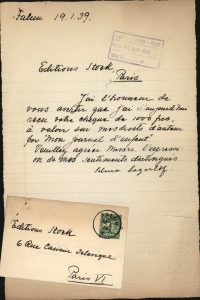 Falun 19.1.39.
Editions Stock
Paris
J'ai l'honneur de
vous avertir que j'ai aujourd'hui
reçu votre cheque de 1000 fcs,
à valoir sur mes droits d'auteur
pour Mon journal d'enfant.
Veuillez, agréer Messieurs, l'expression
de mes sentiments distingués
Selma Lagerlöf
Editions Stock
6 Rue Casimir Delavigne
Paris VI